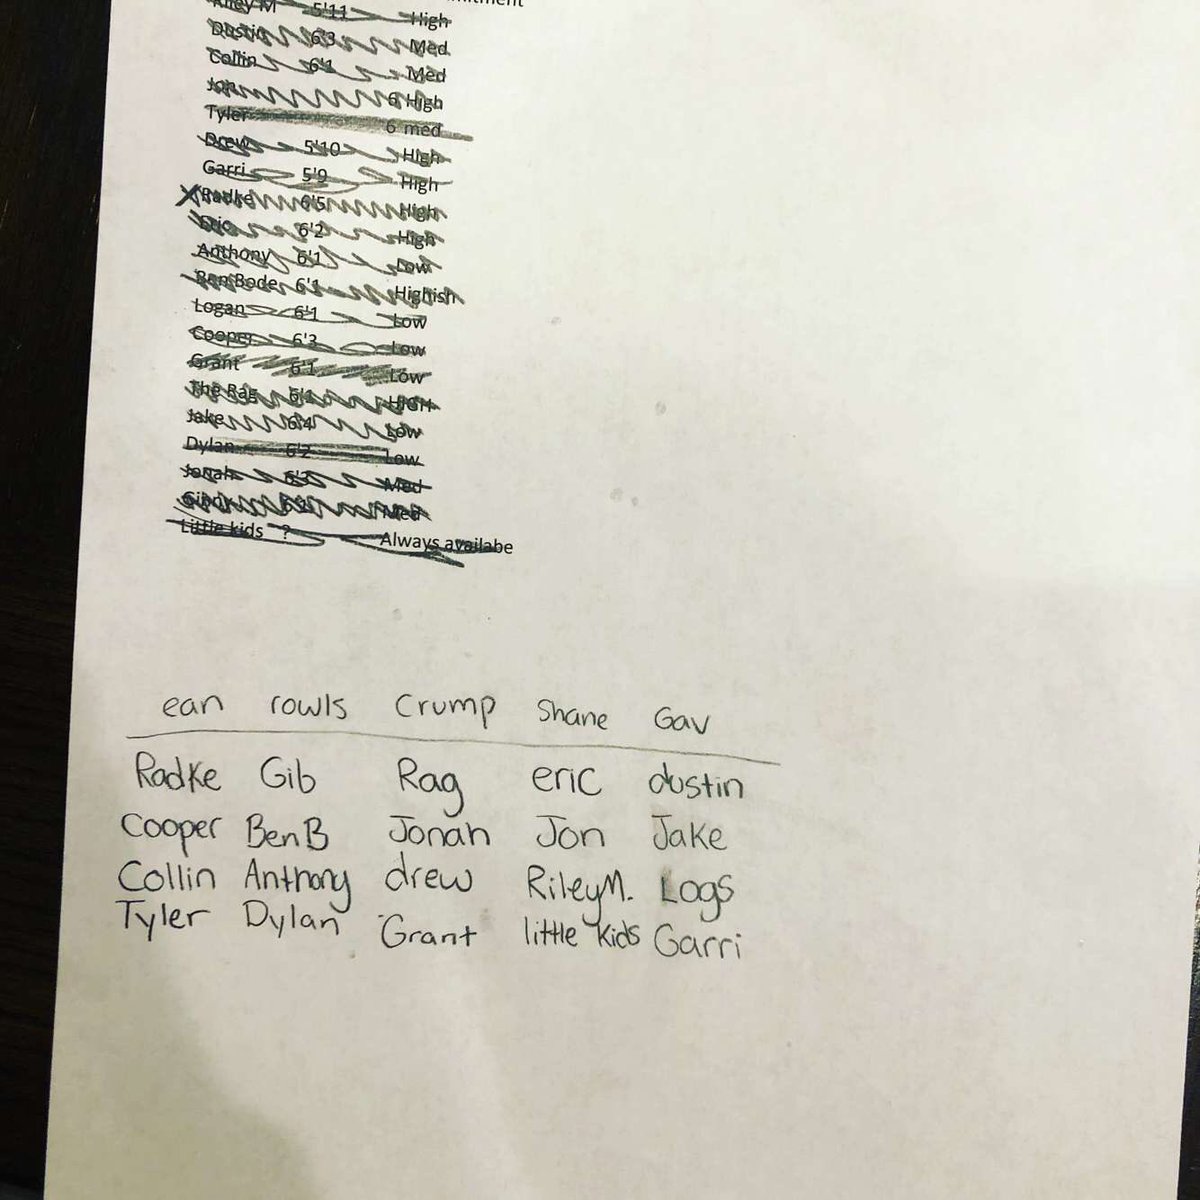 Riley M 5'11 High
Dustin 6'3 Med
Collin 6'1 Med
Jon 6 High
Tyler 6 med
Drew 5'10 High
Garri 5'9 High
Radke 6'5 High
Eric 6'2 High
Anthony 6'1 Low
Ben Bode 6'1 Highish
Logan 6'1 Low
Cooper 6'3 Low
Grant 6'1 Low
The Rag HIGH
Jake 6'4 Low
Dylan 6'2 Low
Jonah 6'3 Med
Med
Little kids ? Always availabe
ean rowls Crump Shane Gav
Radke Gib Rag eric dustin
Cooper Ben B Jonah Jon Jake
Collin Anthony drew Riley M. Logs
Tyler Dylan Grant little kids Garri